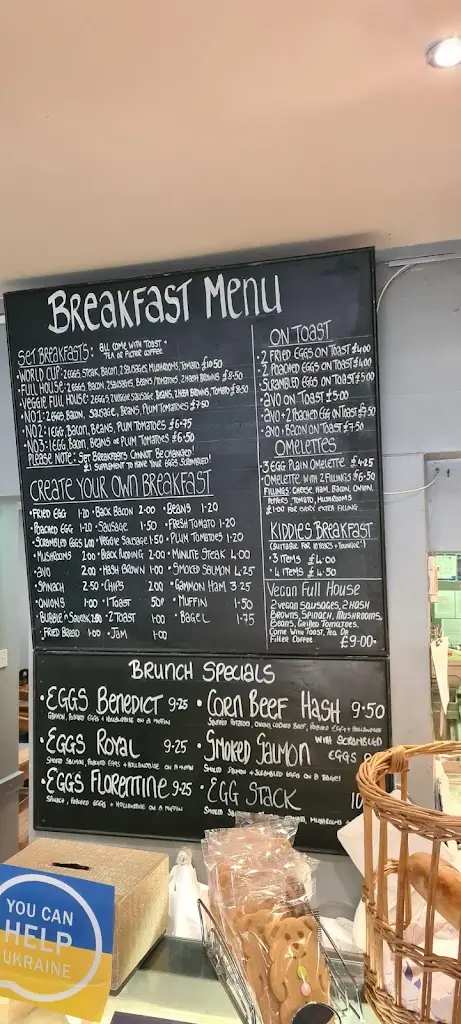 BREAKFAST MENU
SET BREAKFASTS: ALL COME WITH TOAST +
TEA OR FILTER COFFEE
• WORLD CUP: 2 EGGS, STEAK, BACON, 2 SAUSAGES, MUSHROOMS, TOMATO £10.50
• FULL HOUSE: 2 EGGS, 2 BACON, 2 SAUSAGES, BEANS, TOMATOES, 2 HASH BROWNS £8.50
• VEGGIE FULL HOUSE: 2 EGGS, 2 VEGGIE SAUSAGE, BEANS, 2 HASH BROWNS, TOMATO £8.50
• NO1: 2 EGGS, BACON, SAUSAGE, BEANS, PLUM TOMATOES £7.50
• NO2: 1 EGG, BACON, BEANS, PLUM TOMATOES £6.75
• NO3: 1 EGG, BACON, BEANS OR PLUM TOMATOES £6.50
PLEASE NOTE: SET BREAKFASTS CANNOT BE CHANGED!
£1 SUPPLEMENT TO HAVE YOUR EGGS SCRAMBLED!
CREATE YOUR OWN BREAKFAST
• FRIED EGG 1.20 • BACK BACON 2.00 • BEANS 1.20
• POACHED EGG 1.20 • SAUSAGE 1.50 • FRESH TOMATO 1.20
• SCRAMBLED EGGS 2.00 • VEGGIE SAUSAGE 1.50 • PLUM TOMATOES 1.20
• MUSHROOMS 2.00 • BLACK PUDDING 2.00 • MINUTE STEAK 4.00
• AVO 2.00 • HASH BROWN 1.00 • SMOKED SALMON 4.25
• SPINACH 2.50 • CHIPS 2.00 • GAMMON HAM 3.25
• ONIONS 1.00 • 1 TOAST 50P • MUFFIN 1.50
• BUBBLE N SQUEEK 2.00 • 2 TOAST 1.00 • BAGEL 1.75
• FRIED BREAD 1.00 • JAM 1.00
ON TOAST
• 2 FRIED EGGS ON TOAST £4.00
• 2 POACHED EGGS ON TOAST £4.00
• SCRAMBLED EGGS ON TOAST £5.00
• AVO ON TOAST £5.00
• AVO + 2 POACHED EGG ON TOAST £7.50
• AVO + BACON ON TOAST £7.50
OMELETTES
• 3 EGG PLAIN OMELETTE £4.25
• OMELETTE WITH 2 FILLINGS £6.50
FILLINGS: CHEESE, HAM, BACON, ONION,
PEPPERS, TOMATO, MUSHROOMS
£1.00 FOR EVERY EXTRA FILLING
KIDDIES BREAKFAST
• 3 ITEMS £4.00
• 4 ITEMS £4.50
VEGAN FULL HOUSE
2 VEGAN SAUSAGES, 2 HASH
BROWNS, SPINACH, MUSHROOMS,
BEANS, GRILLED TOMATOES.
COME WITH TOAST, TEA OR
FILTER COFFEE £9.00
BRUNCH SPECIALS
• EGGS BENEDICT 9.25
GAMMON, POACHED EGGS + HOLLANDAISE ON A MUFFIN
• EGGS ROYAL 9.25
SMOKED SALMON, POACHED EGGS + HOLLANDAISE ON A MUFFIN
• EGGS FLORENTINE 9.25
SPINACH, POACHED EGGS + HOLLANDAISE ON A MUFFIN
• CORN BEEF HASH 9.50
SAUTEED POTATOES, ONIONS, CORNED BEEF, POACHED EGG + HOLLANDAISE
• SMOKED SALMON WITH SCRAMBLED
EGGS
SMOKED SALMON + SCRAMBLED EGGS ON A BAGEL
• EGG STACK 10
YOU CAN
HELP
UKRAINE